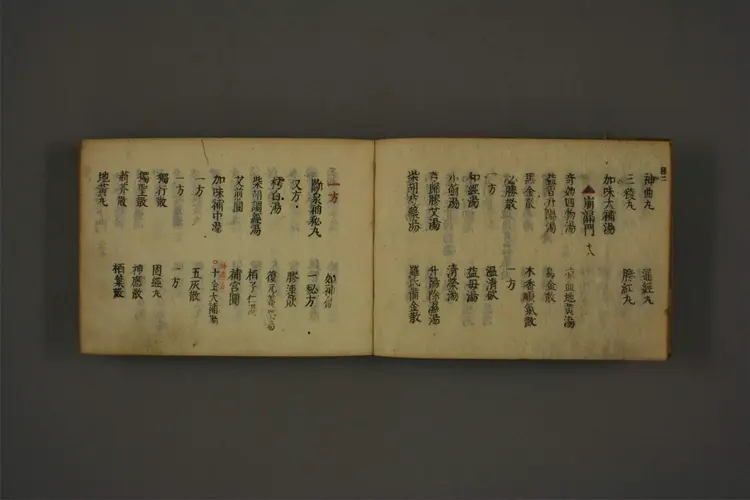 神曲丸 通經丸
三稜丸 勝紅丸
加味大補湯
崩漏門 十八
奇効四物湯 凉血地黄湯
益胃升陽湯
黒金散 木香順氣散
必勝散 一方
一方 温清飲
和經湯 益母湯
小薊湯 清榮湯
芎歸膠艾湯 升陽除濕湯
羅氏補金散
一方
斷泉補秘丸 一秘方
又方 膠連散
樗白湯
柴胡調經湯 栢子仁湯
艾煎圓 補宮圓
加味補中湯 十全大補湯
一方 五灰散
獨行散 一方
獨聖散 固經丸
荊芥散 神應散
地黄丸 栢葉散